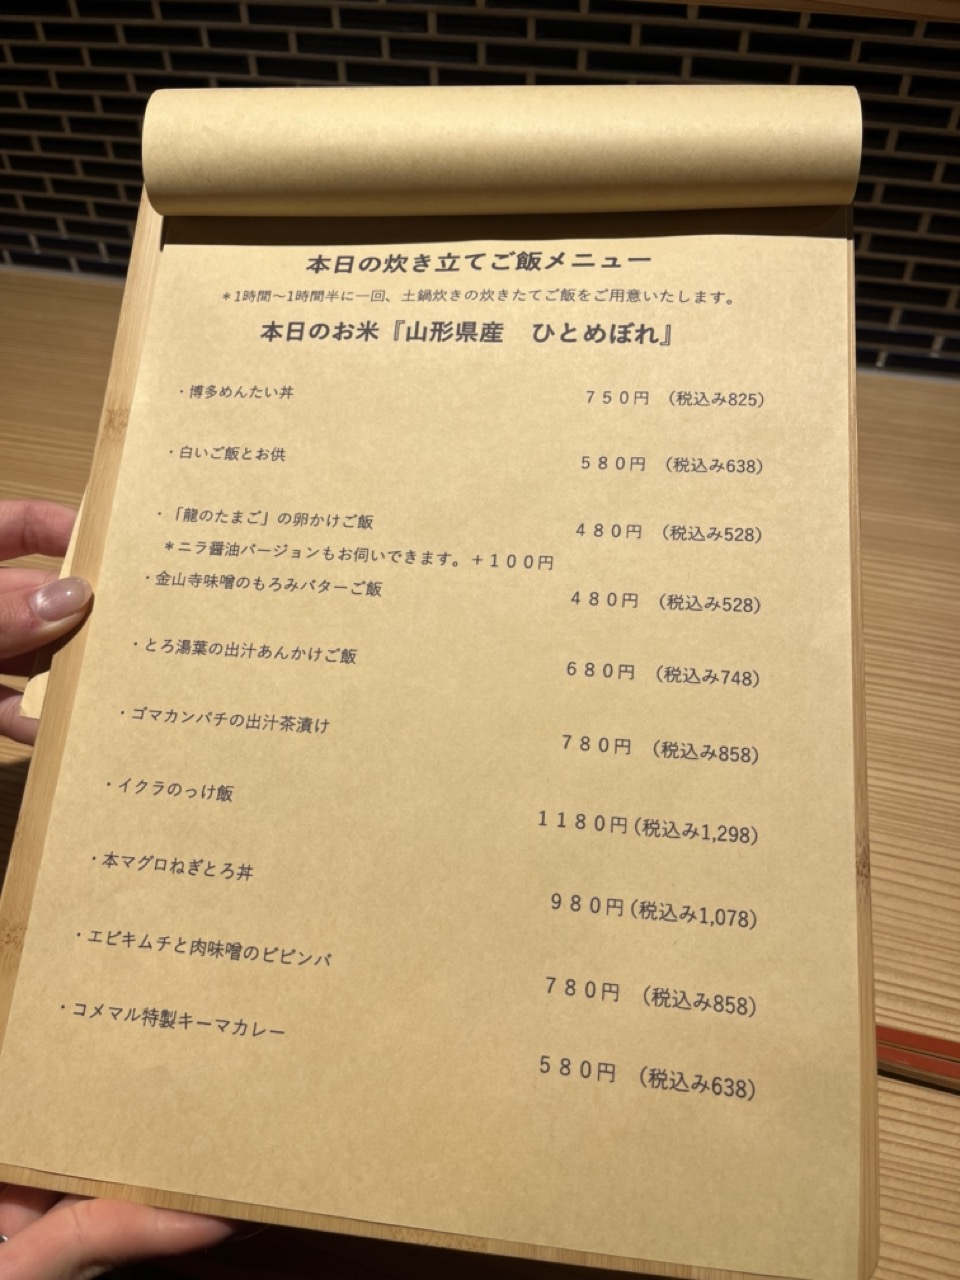 本日の炊き立てご飯メニュー
＊1時間～1時間半に一回、土鍋炊きの炊きたてご飯をご用意いたします。
本日のお米『山形県産　ひとめぼれ』
・博多めんたい丼　７５０円　（税込み825）
・白いご飯とお供　５８０円　（税込み638）
・「龍のたまご」の卵かけご飯　４８０円　（税込み528）
＊ニラ醤油バージョンもお伺いできます。＋１００円
・金山寺味噌のもろみバターご飯　４８０円　（税込み528）
・とろ湯葉の出汁あんかけご飯　６８０円　（税込み748）
・ゴマカンパチの出汁茶漬け　７８０円　（税込み858）
・イクラのっけ飯　１１８０円（税込み1,298）
・本マグロねぎとろ丼　９８０円（税込み1,078）
・エビキムチと肉味噌のビビンバ　７８０円　（税込み858）
・コメマル特製キーマカレー　５８０円　（税込み638）